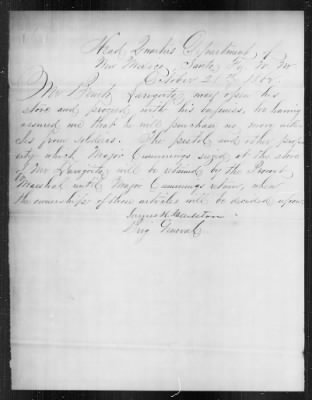 Head Quarters Department of
New Mexico, Santa Fe N. M
October 21st 1862
Mr may open his
store and proceed with his business, he having
assured me that he will purchase no more articles
from soldiers. The pistol and other prop
erty which Major Cummings seized at the store
of Mr will be retained by the Provost
Marshal until Major Cummings return, when
the ownership of those articles will be decided upon
James H. Carleton
Brig General